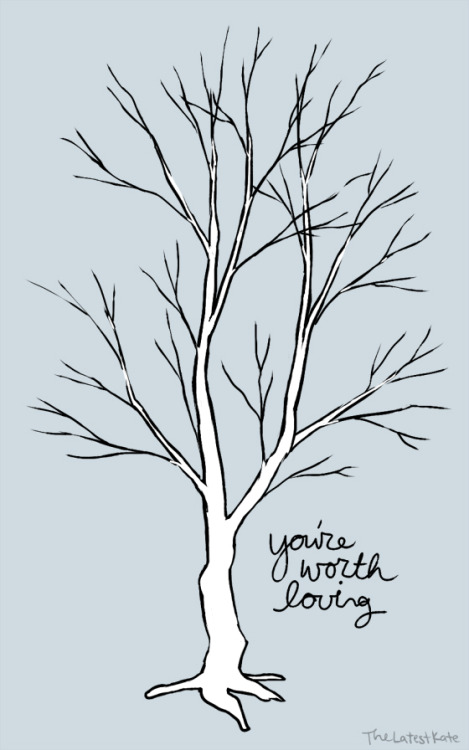 you're
worth
loving
TheLatestKate